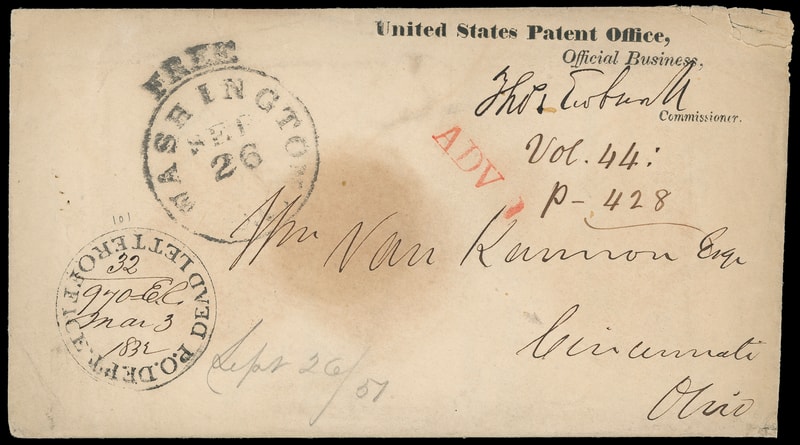 United States Patent Office,
Official Business,
Thos Ewbank
Commissioner.
FREE
WASHINGTON
SEP
26
ADV
Vol. 44:
p - 428
101
Wm Van Kannon Esqr
Cincinnati
Ohio
P.O. DEPT. DEAD LETTER OFFICE
32
970 E.C.
Mar 3
1852
Sept 26/51